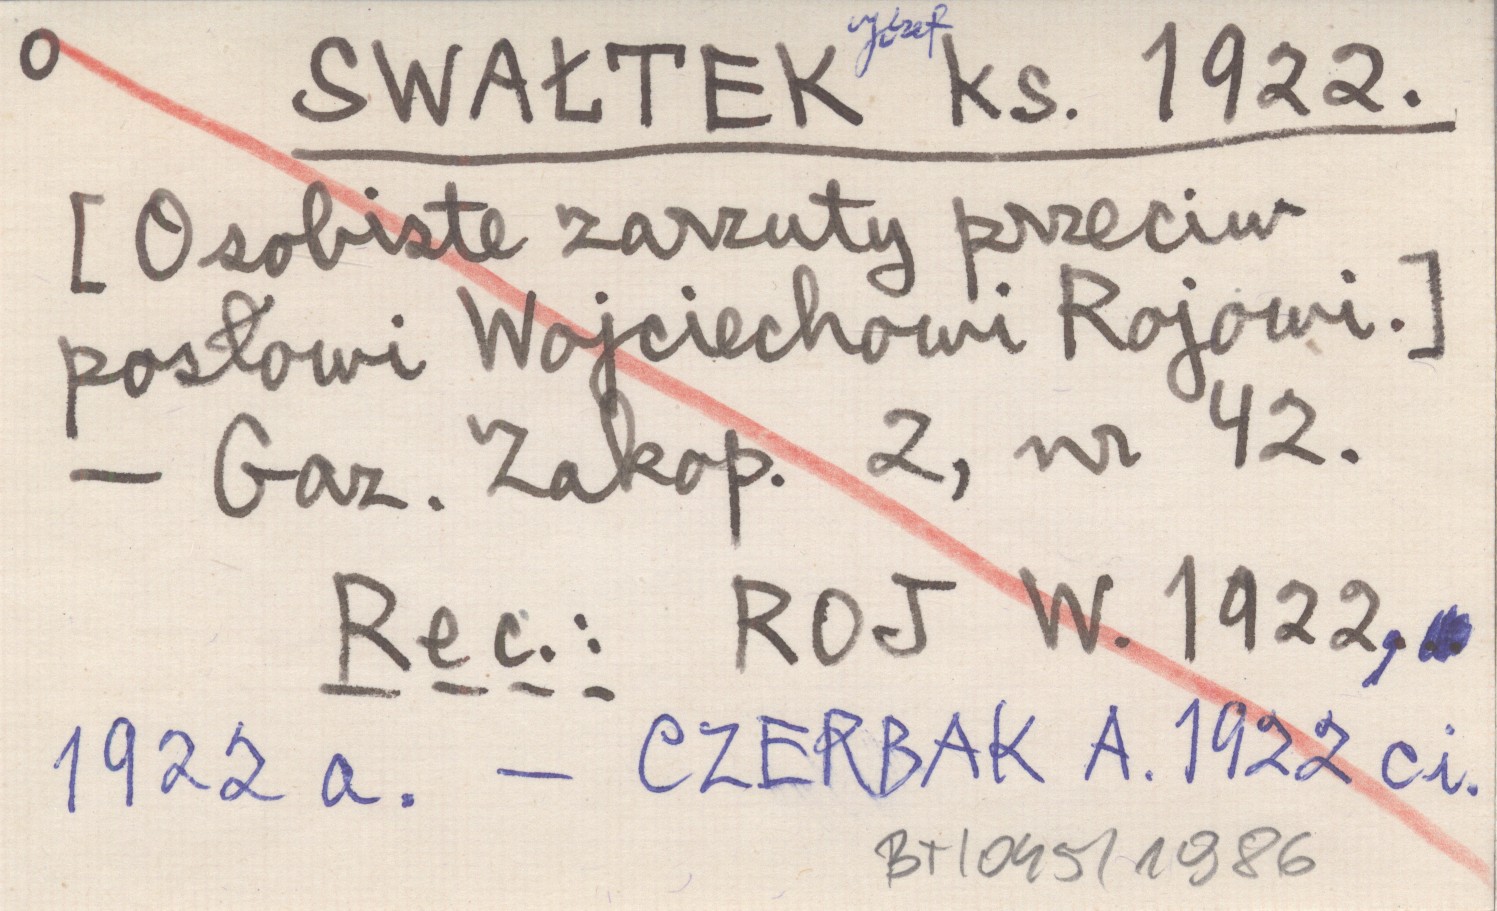 O SWAŁTEK ks. 1922.
[Osobiste zarzuty przeciw
posłowi Wojciechowi Rojowi.]
— Gaz. Zakop. 2, nr 42.
Rec.: ROJ W. 1922,
1922 a. — CZERBAK A. 1922 ci.
BT/045/1986